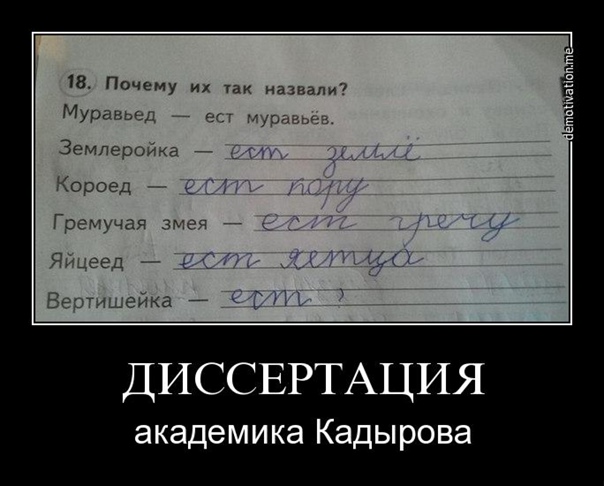 18. Почему их так назвали?
Муравьед — ест муравьёв.
Землеройка — ест землё
Короед — ест кору
Гремучая змея — ест гречу
Яйцеед — ест яетца
Вертишейка — ест ?
demotivation.me
ДИССЕРТАЦИЯ
академика Кадырова